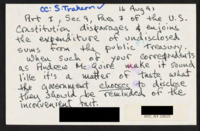 cc: S. Trahern 16 Aug 91
Part I, Sec 9, Para 7 of the U.S.
Constitution disparages & enjoins
the expenditure of undisclosed
sums from the public treasury.
When such of your correspondents
as Andrew McGuire make it sound
like it's a matter of taste what
the government chooses to disclose
they should be reminded of the
inconvenient text.